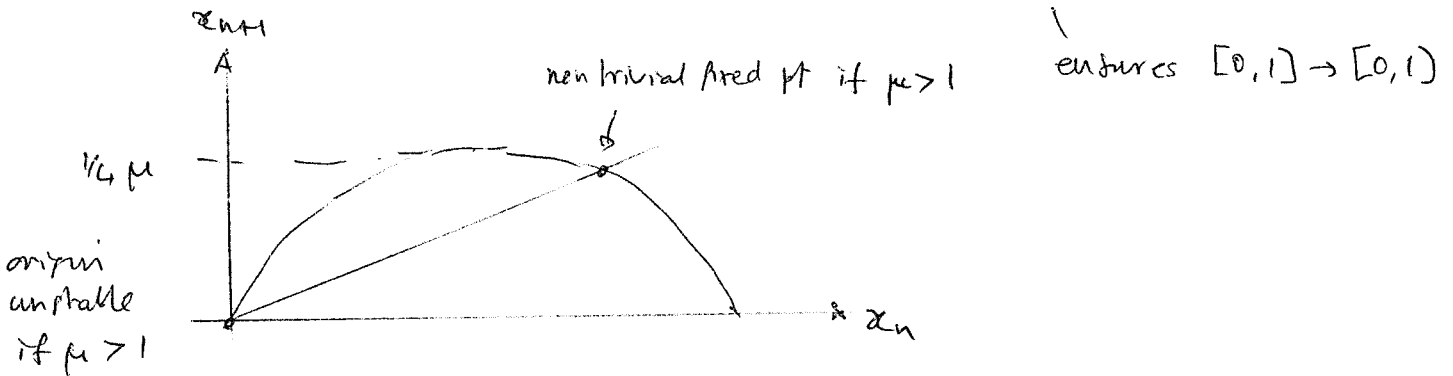 xₙ₊₁
non trivial fixed pt if μ > 1
ensures [0,1] → [0,1]
1/4 μ
origin
unstable
if μ > 1
xₙ